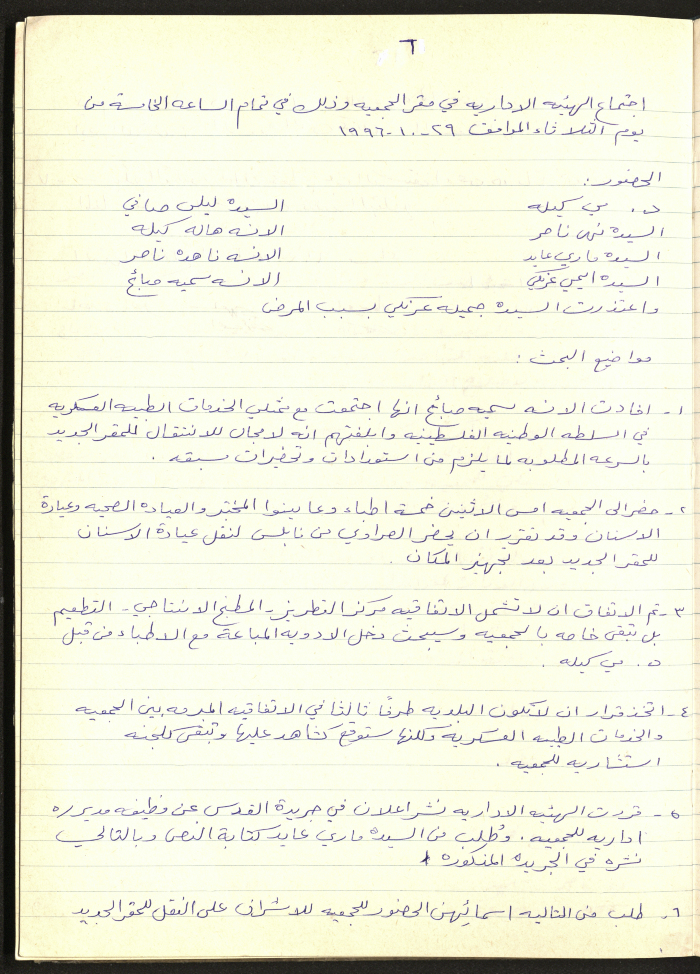 ٦
اجتماع الهيئه الاداريه في مقر الجمعيه وذلك في تمام الساعه الخامسة من
يوم الثلاثاء الموافق ٢٩-١٠-١٩٩٦
الحضور:
د. مي كيله
السيده نهى ناصر
السيده ماري عايد
السيده اليمي عرنكي
السيده ليلى صافي
الانسه هاله كيلة
الانسه ناهده ناصر
الانسه سميه صبائغ
واعتذرت السيده جميله عرنكي بسبب المرض
مواضيع البحث:
١- افادت الانسه سميه صبائغ انها اجتمعت مع ممثلي الخدمات الطبيه العسكريه
في السلطه الوطنيه الفلسطينيه وابلغتهم انه لا مجال للانتقال للمقر الجديد
بالسرعه المطلوبه لما يلزم من استعدادات وتحضيرات مسبقه.
٢- حضر الى الجمعيه امس الاثنين خمسة اطباء وعاينوا المختبر والعياده الصحيه وعيادة
الاسنان وقد تقرر ان يحضر الصراوي من نابلس لنقل عيادة الاسنان
للمقر الجديد بعد تجهيز المكان.
٣- تم الاتفاق ان لا تشمل الاتفاقيه مركز التطريز - المطبخ الانتاجي - التطعيم
بل تبقى خاصه بالجمعيه وسيبحث دخل الادويه المباعة مع الاطباء من قبل
د. مي كيله.
٤- اتخذ قرار ان لا تكون البلديه طرفًا ثالثا في الاتفاقيه المبرمه بين الجمعيه
والخدمات الطبيه العسكريه ولكنها ستوقع كشاهد عليها وتبقى كلجنه
استشاريه للجمعيه.
٥- قررت الهيئه الاداريه نشر اعلان في جريدة القدس عن وظيفه مدير/ه
اداريه للجمعيه. وطُلب من السيده ماري عايد كتابة النص وبالتالي
نشره في الجريده المذكوره
٦- طلب من التاليه اسمائهن الحضور للجمعيه للاشراف على النقل للمقر الجديد